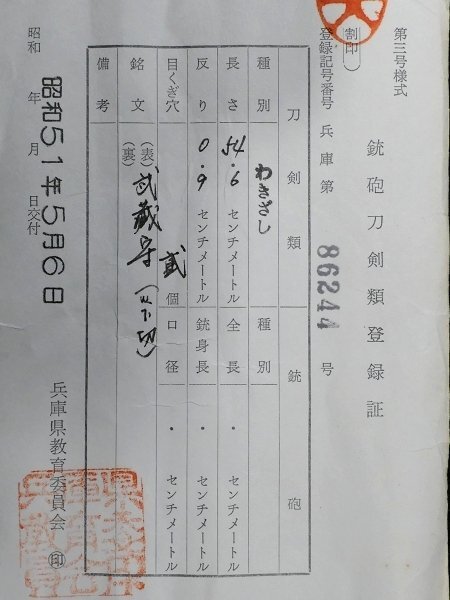 第三号様式
銃砲刀剣類登録証
割印
登録記号番号 兵庫第 86244 号
刀剣類 銃砲
種別 わきざし 種別
長さ 54.6 センチメートル 全長 ・ センチメートル
反り 0.9 センチメートル 銃身長 ・ センチメートル
目くぎ穴 貳 個 口径 ・ センチメートル
銘文 (表) 武蔵守(以下切)
(裏)
備考
昭和 年 月 日交付
昭和51年5月6日
兵庫県教育委員会 印